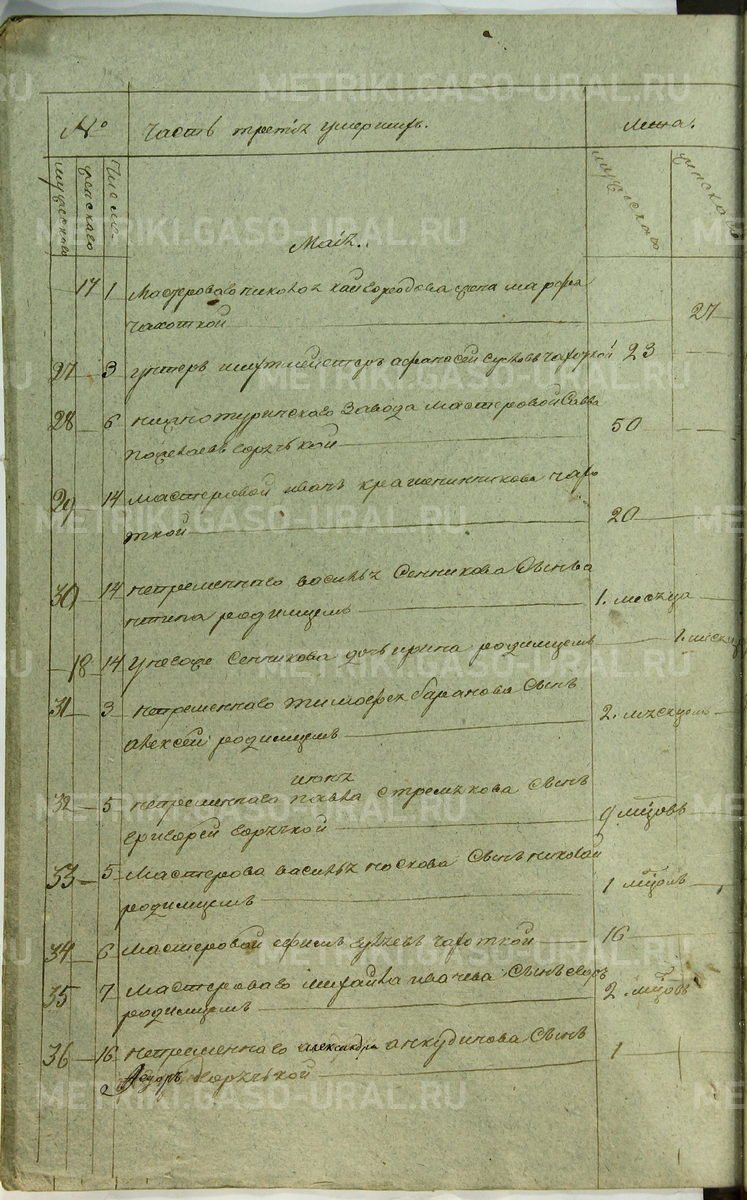 METRIKI.GASO-URAL.RU
№ Часть третія умершихъ. Лета.
мужескаго женскаго Число. мужескаго женскаго
Маія.
17 1 Мастероваго николая кайгородова жена марфа
чахоткой 27
27 3 унтеръ шихтмейстеръ афанасей чахоткой 23
28 6 нижнотуринскаго завода мастеровой Савва
горячькой 50
29 14 мастеровой иванъ крашенинникова чахо
ткой 20
30 14 непременнаго василья Сенникова Сынъ
родимцемъ 1. месяца
18 14 Сенникова дочь ирина родимцемъ 1.
31 3 непременнаго тимофея баранова Сынъ
алексей родимцемъ 2. месяцемъ
июня
32 5 непременнаго павла Стремякова Сынъ
григорей горячкой 9 мцовъ
33 5 Мастерова василья носкова Сынъ николай
родимцемъ 1
34 6 мастеровой ефимъ чахоткой 16
35 7 мастероваго михайла Сынъ егоръ
родимцемъ 2. мцовъ
36 16 непременнаго александра анкудинова Сынъ
Федоръ горячькой 1